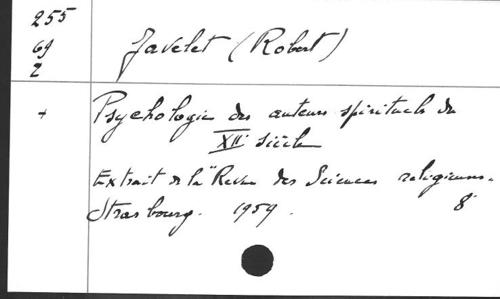 255
69
2
Javelet (Robert)
+ Psychologie des auteurs spirituels du
XIIe siècle
Extrait de la "Revue des Sciences religieuses.
Strasbourg. 1959. 8°